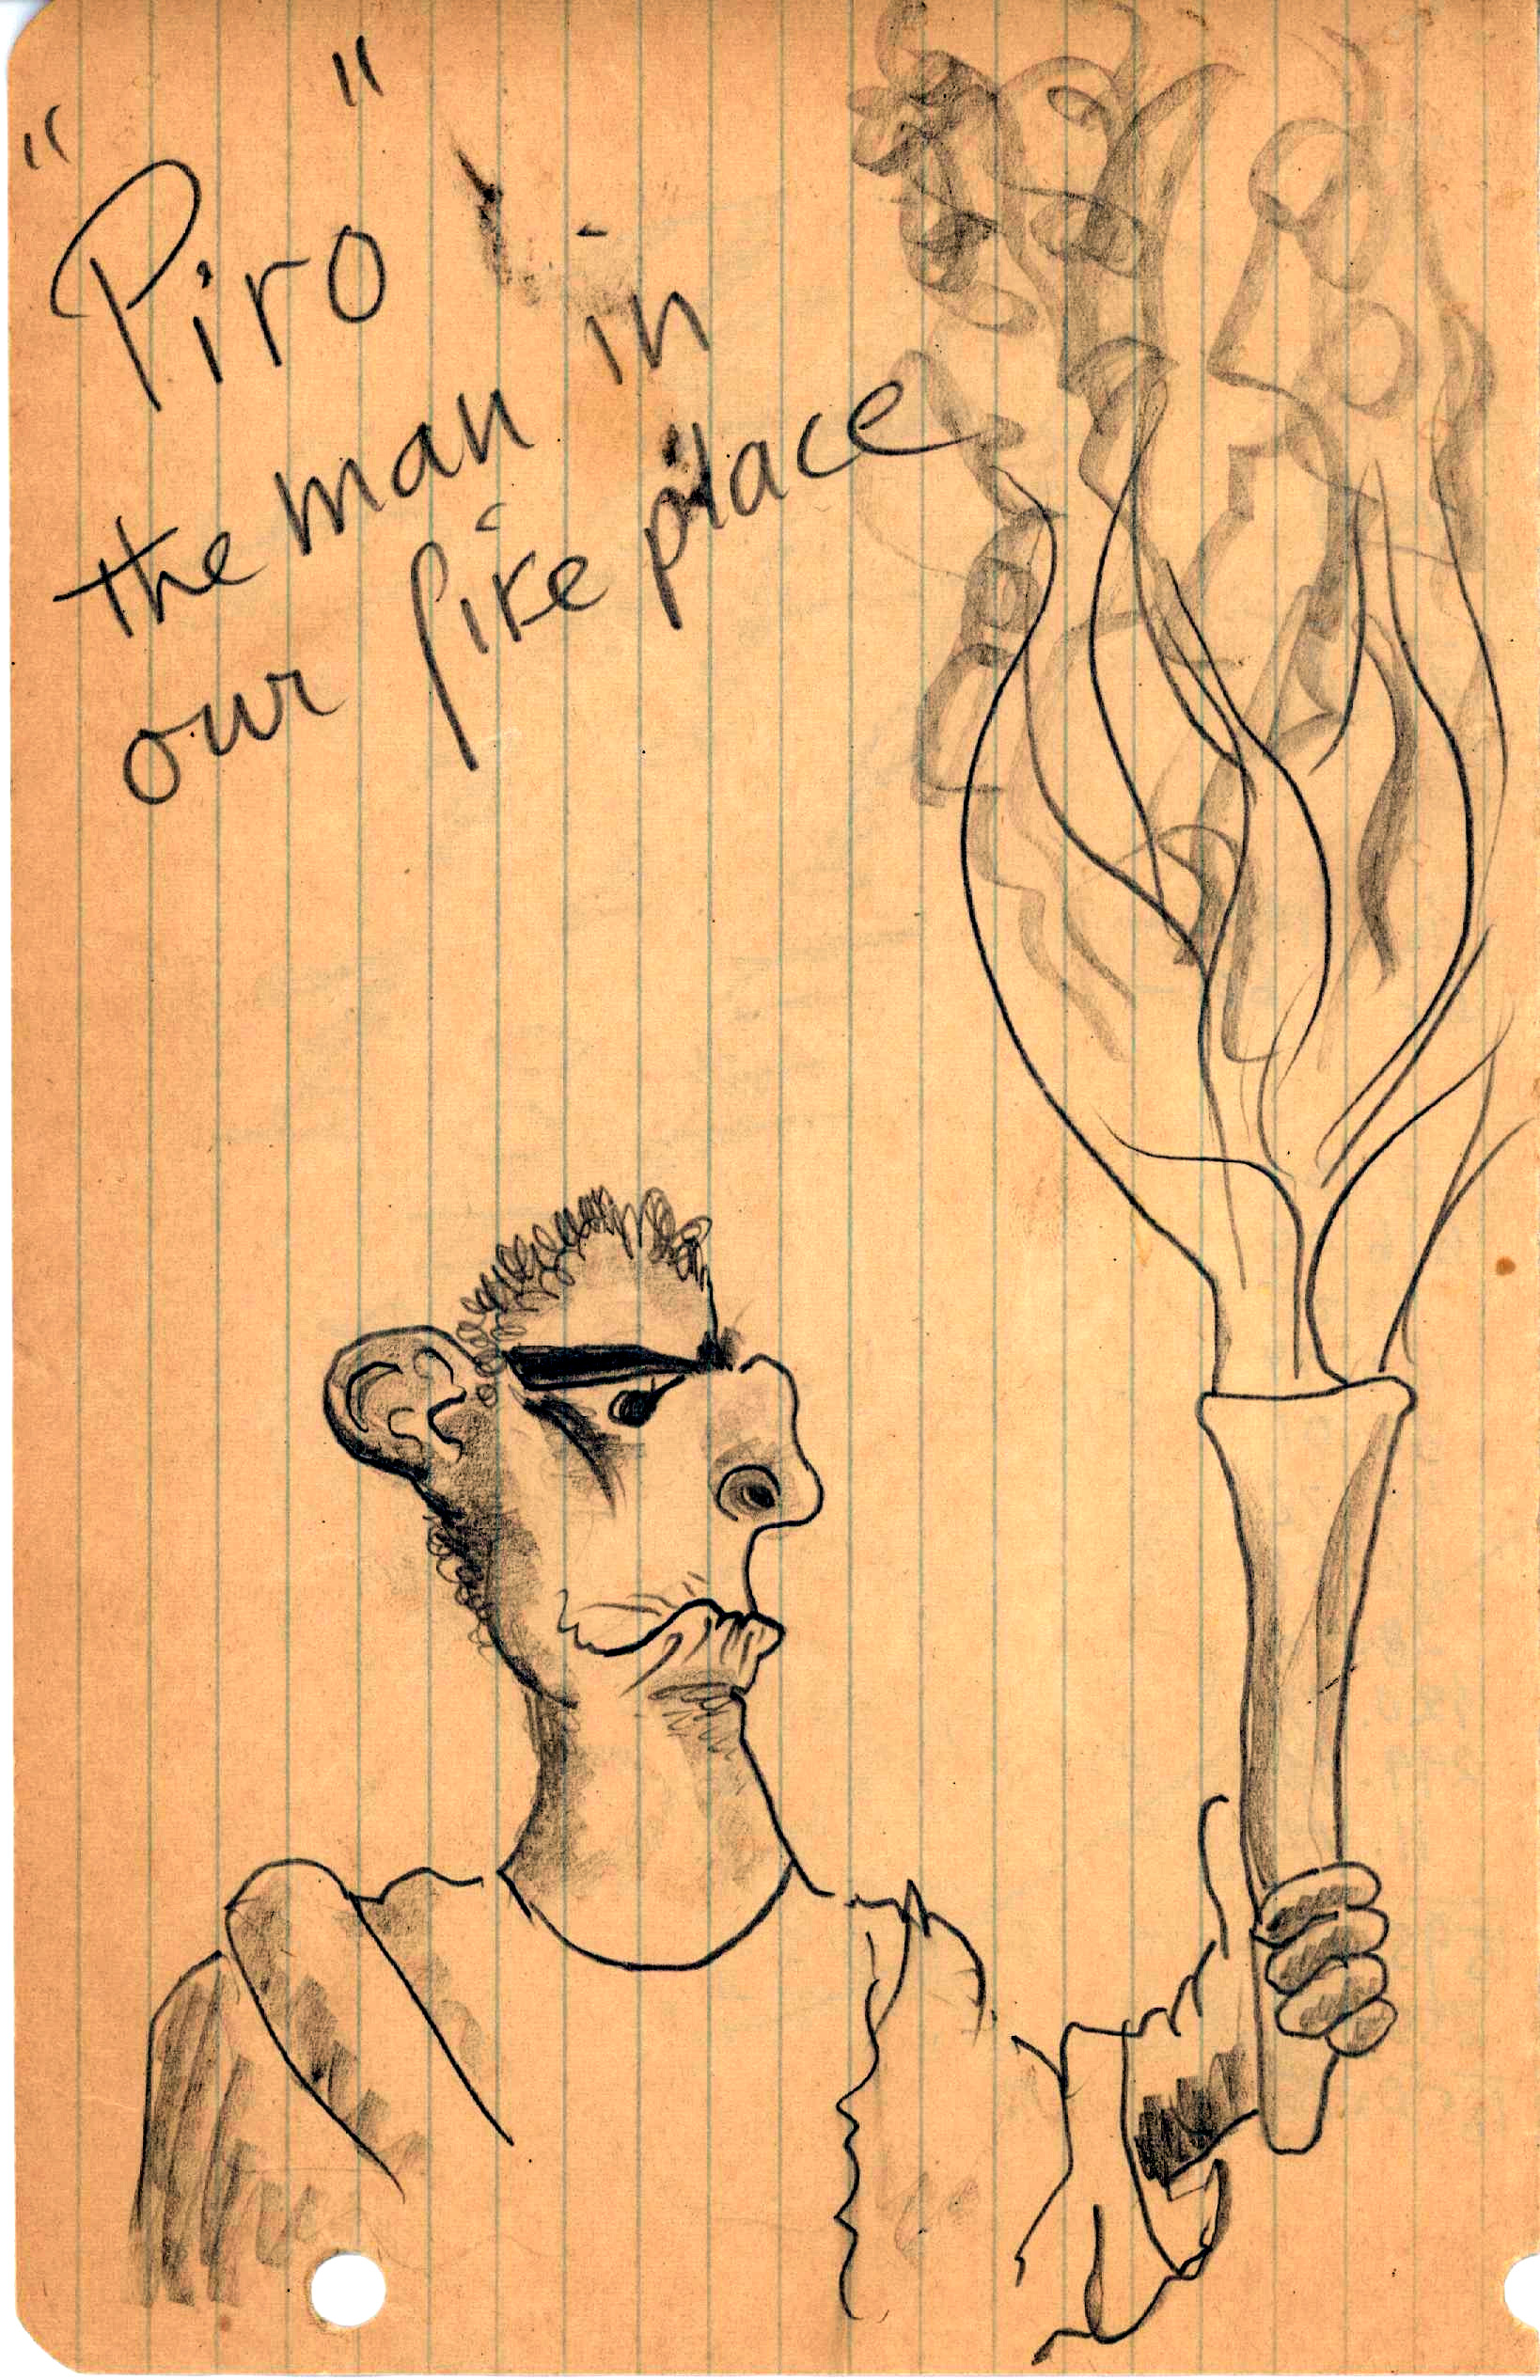 "Piro"
the man in
our fire place